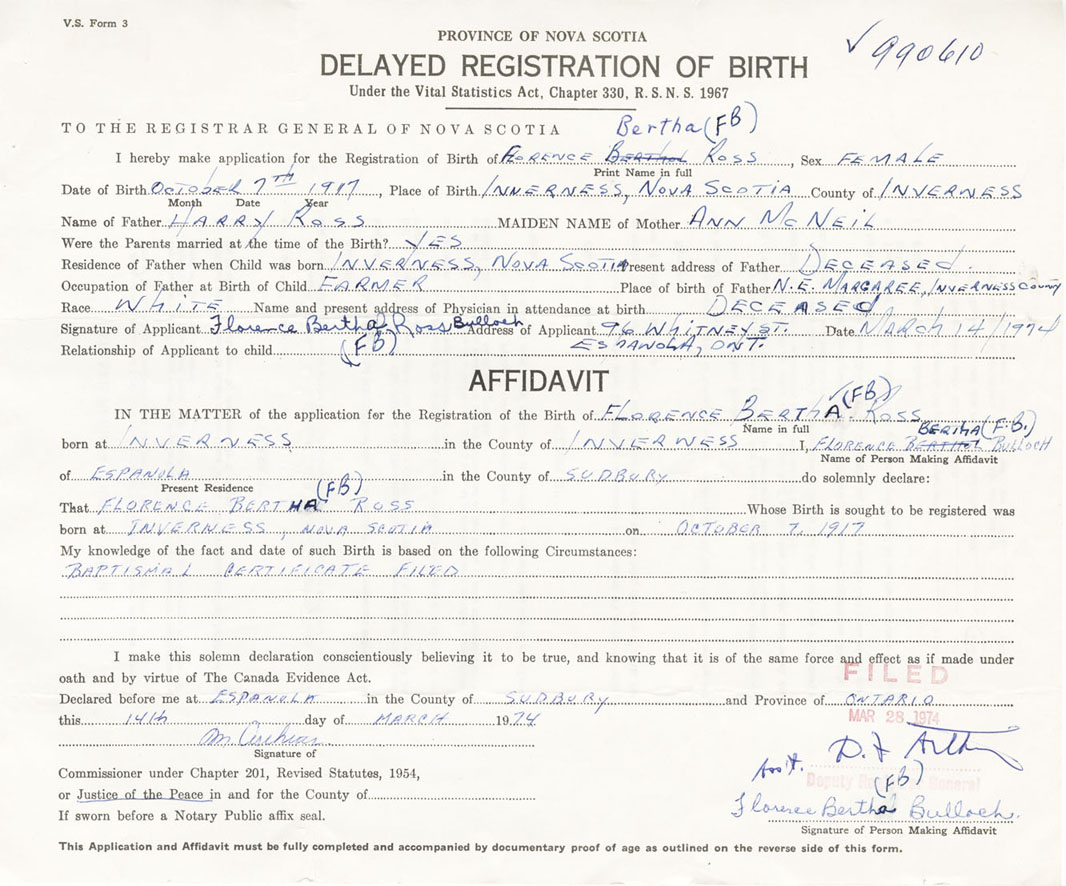 V.S. Form 3
PROVINCE OF NOVA SCOTIA
✓ 990610
DELAYED REGISTRATION OF BIRTH
Under the Vital Statistics Act, Chapter 330, R. S. N. S. 1967
TO THE REGISTRAR GENERAL OF NOVA SCOTIA Bertha (FB)
I hereby make application for the Registration of Birth of FLORENCE BERTHOL ROSS, Sex FEMALE
Print Name in full
Date of Birth OCTOBER 7TH 1917, Place of Birth INNERNESS, NOVA SCOTIA County of INVERNESS
Month Date Year
Name of Father HARRY ROSS MAIDEN NAME of Mother ANN MCNEIL
Were the Parents married at the time of the Birth? YES
Residence of Father when Child was born INVERNESS, NOVA SCOTIA Present address of Father DECEASED.
Occupation of Father at Birth of Child FARMER Place of birth of Father N.E. MARGAREE, INVERNESS COUNTY
Race WHITE Name and present address of Physician in attendance at birth DECEASED
Signature of Applicant Florence Bertha Ross Bulloch Address of Applicant 96 WHITNEY ST. Date MARCH 14/1974
Relationship of Applicant to child (FB) ESPANOLA, ONT.
AFFIDAVIT
IN THE MATTER of the application for the Registration of the Birth of FLORENCE BERTHA (FB) ROSS
Name in full BERTHA (F.B.)
born at INVERNESS in the County of INVERNESS I, FLORENCE BERTHOL BULLOCH
Name of Person Making Affidavit
of ESPANOLA in the County of SUDBURY do solemnly declare:
Present Residence (FB)
That FLORENCE BERTHA ROSS Whose Birth is sought to be registered was
born at INVERNESS, NOVA SCOTIA on OCTOBER 7, 1917
My knowledge of the fact and date of such Birth is based on the following Circumstances:
BAPTISMAL CERTIFICATE FILED
I make this solemn declaration conscientiously believing it to be true, and knowing that it is of the same force and effect as if made under
oath and by virtue of The Canada Evidence Act.
FILED
Declared before me at ESPANOLA in the County of SUDBURY and Province of ONTARIO
this 14th day of MARCH 1974
MAR 28 1974
Signature of
Ass't. D. F.
Commissioner under Chapter 201, Revised Statutes, 1954,
Deputy Registrar General
(FB)
or Justice of the Peace in and for the County of
Florence Bertha Bulloch.
If sworn before a Notary Public affix seal.
Signature of Person Making Affidavit
This Application and Affidavit must be fully completed and accompanied by documentary proof of age as outlined on the reverse side of this form.